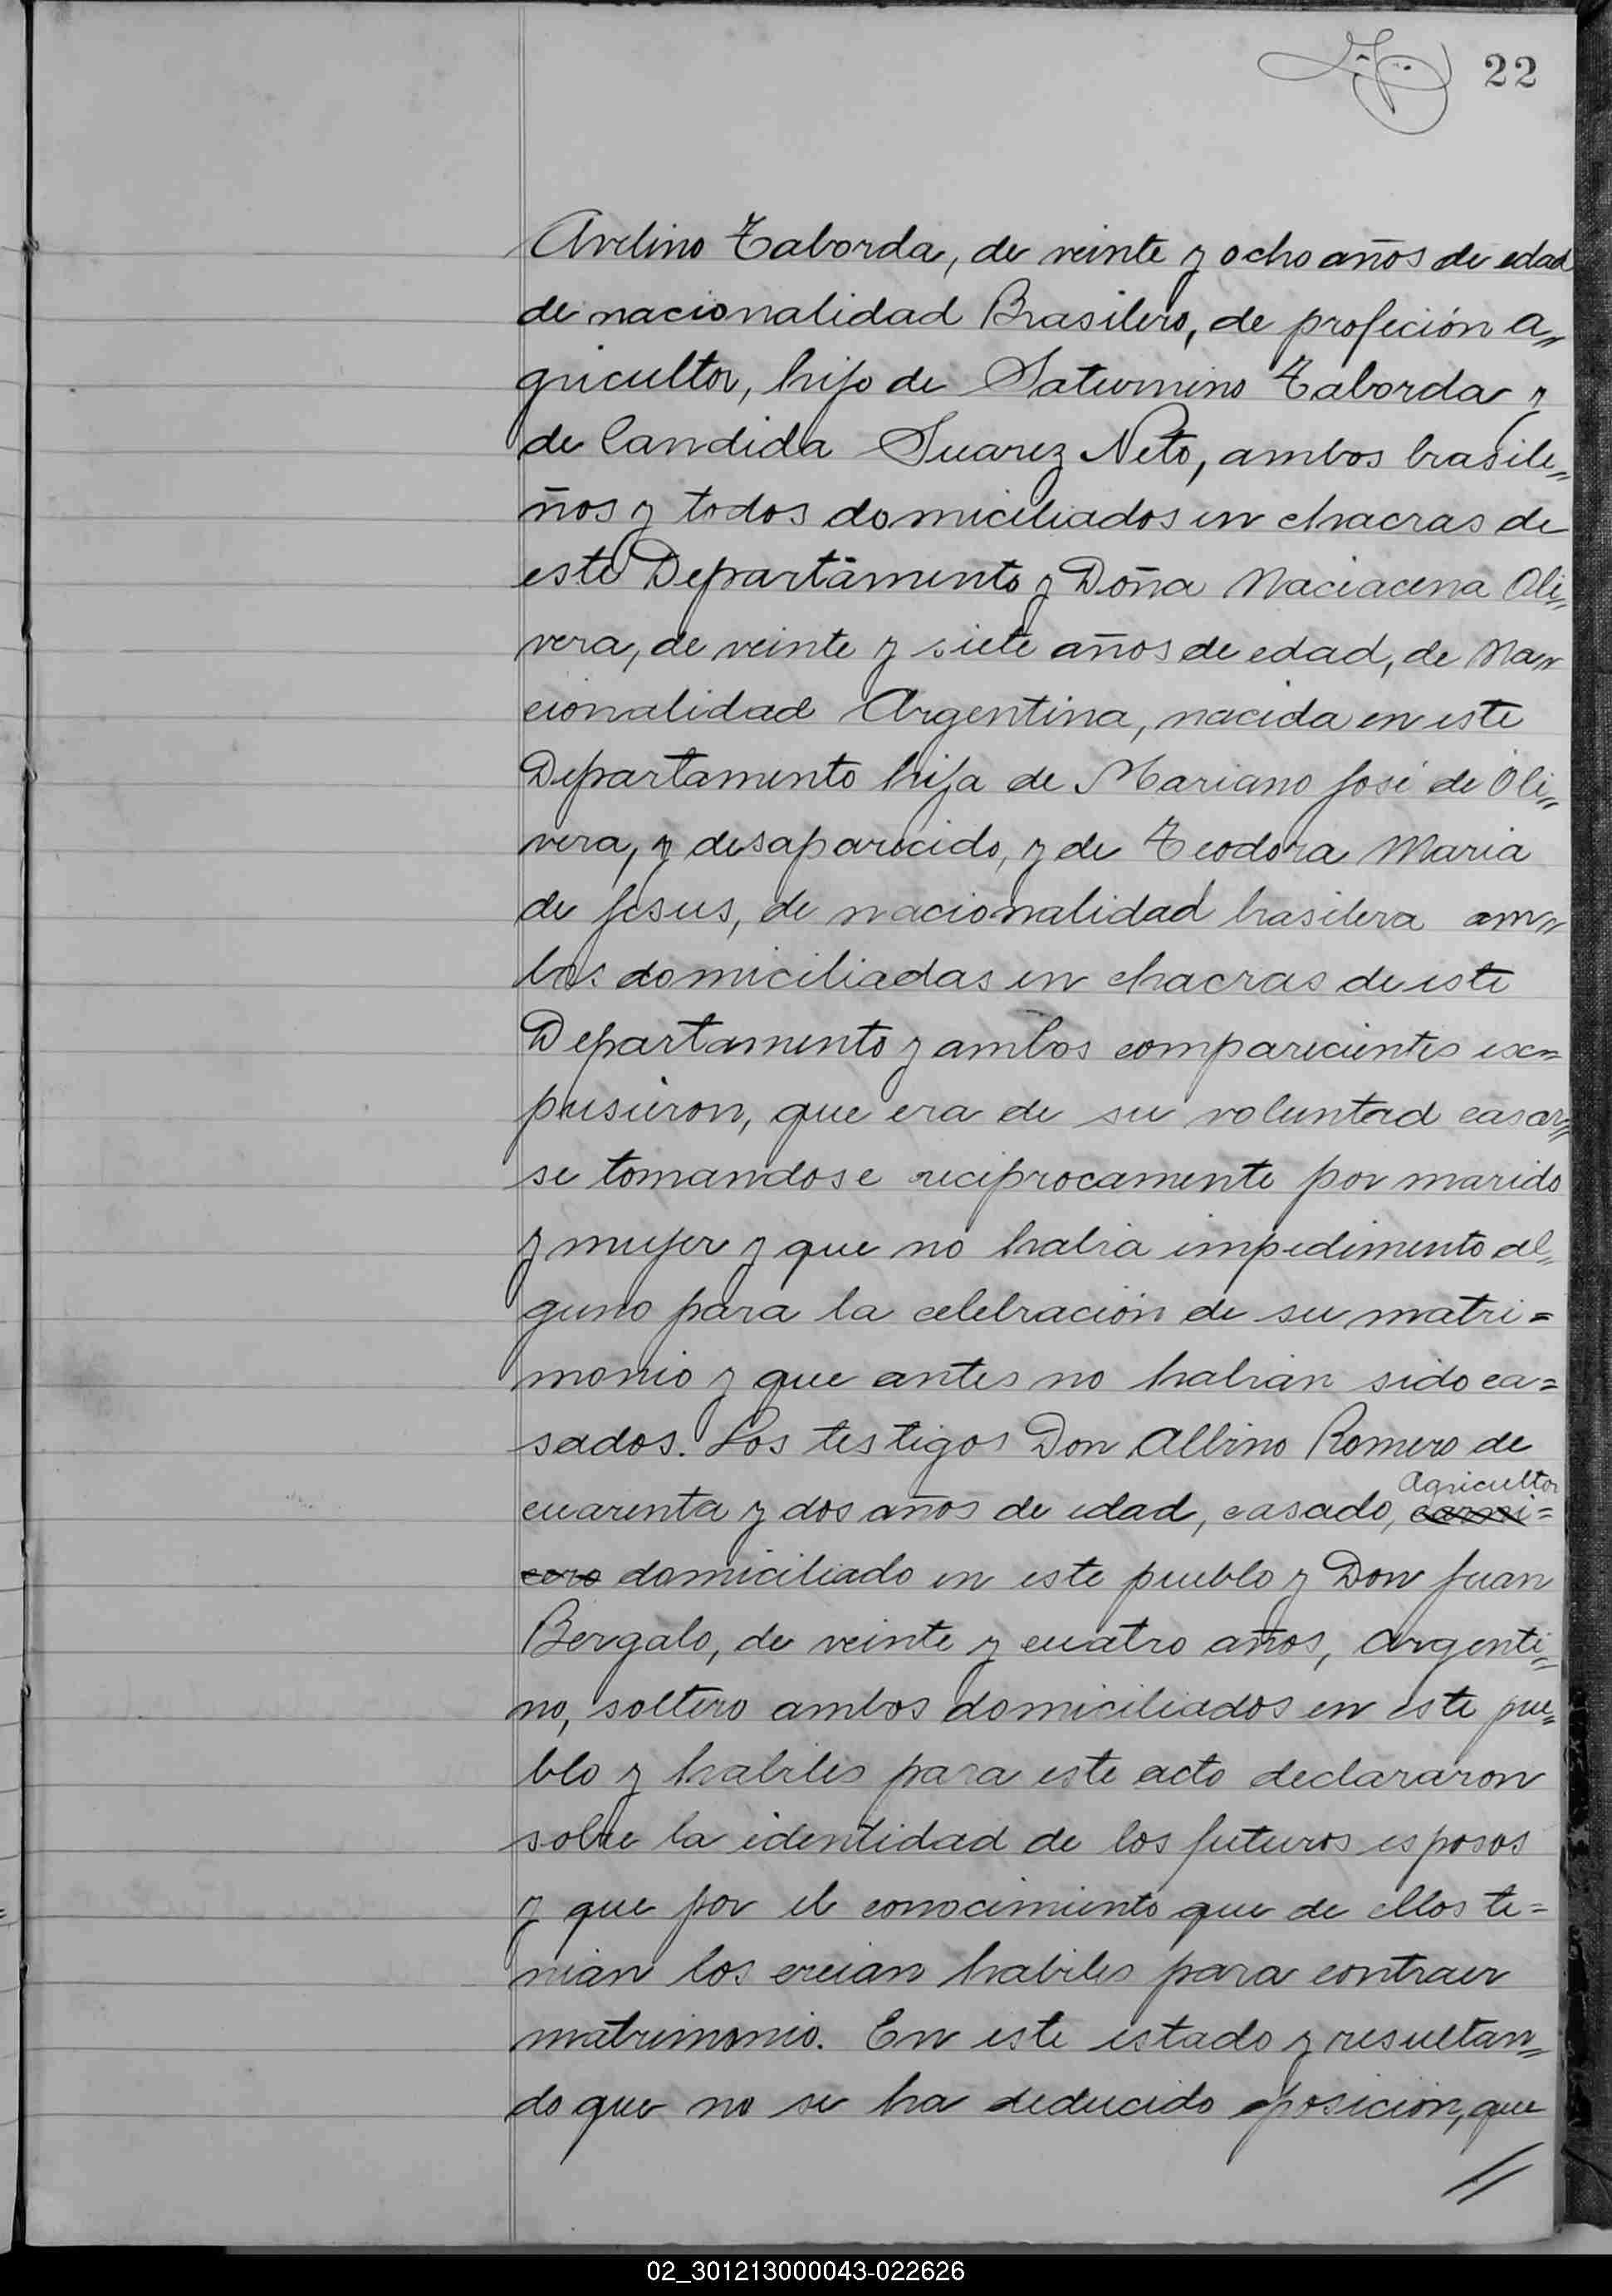 22
Avelino Taborda, de veinte y ocho años de edad
de nacionalidad Brasilero, de profeción a„
gricultor, hijo de Saturnino Taborda y
de Candida Suarez Neto, ambos brasile„
ños y todos domiciliados en chacras de
este Departamento y Doña Naciacena Oli„
vera, de veinte y siete años de edad, de Na„
cionalidad Argentina, nacida en este
Departamento hija de Mariano José de Oli„
vera, y desaparecido, y de Teodora Maria
de Jesus, de nacionalidad brasilera am„
bos domiciliadas en chacras de este
Departamento y ambos comparecientes ex=
pusieron, que era de su voluntad casar„
se tomandose reciprocamente por marido
y mujer y que no habia impedimento al„
guno para la celebración de su matri=
monio y que antes no habian sido ca=
sados. Los testigos Don Albino Romero de
Agricultor
cuarenta y dos años de edad, casado, carni=
cero domiciliado en este pueblo y Don Juan
Bergalo, de veinte y cuatro años, Argenti„
no, soltero ambos domiciliados en este pue„
blo y habiles para este acto declararon
sobre la identidad de los futuros esposos
y que por el conocimiento que de ellos te=
nian los creian habiles para contraer
matrimonio. En este estado y resultan„
do que no se ha deducido oposición, que
//
02_301213000043-022626